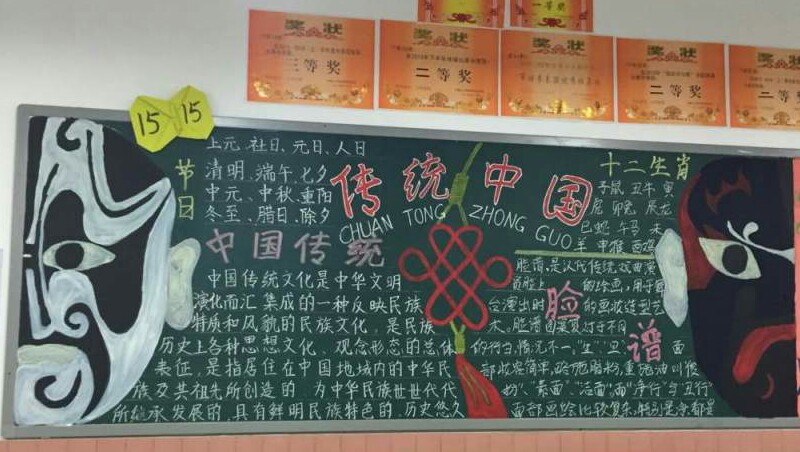 奖状
三等奖
奖状
二等奖
奖状
一等奖
奖状
二等奖
奖状
二等奖
15 15
节日
上元、社日、元日、人日
清明、端午、七夕
中元、中秋、重阳
冬至、腊日、除夕
传统中国
CHUAN TONG ZHONG GUO
中国传统
中国传统文化是中华文明
演化而汇集成的一种反映民族
特质和风貌的民族文化，是民族
历史上各种思想文化、观念形态的总体
表征，是指居住在中国地域内的中华民
族及其祖先所创造的 为中华民族世世代代
所继承发展的，具有鲜明民族特色的，历史悠久
十二生肖
子鼠 丑牛 寅
虎 卯兔 辰龙
巳蛇 午马 未
羊 申猴 酉鸡
脸谱
脸谱，是 传统戏曲演
员脸上 的绘画，用于舞
台演出时 的画妆造型艺
术。脸谱 对于不同
的行当，情况不一，"生"、"旦" 面
部妆容简单，略施脂粉，
面部 绘比较复杂，特别是 都是